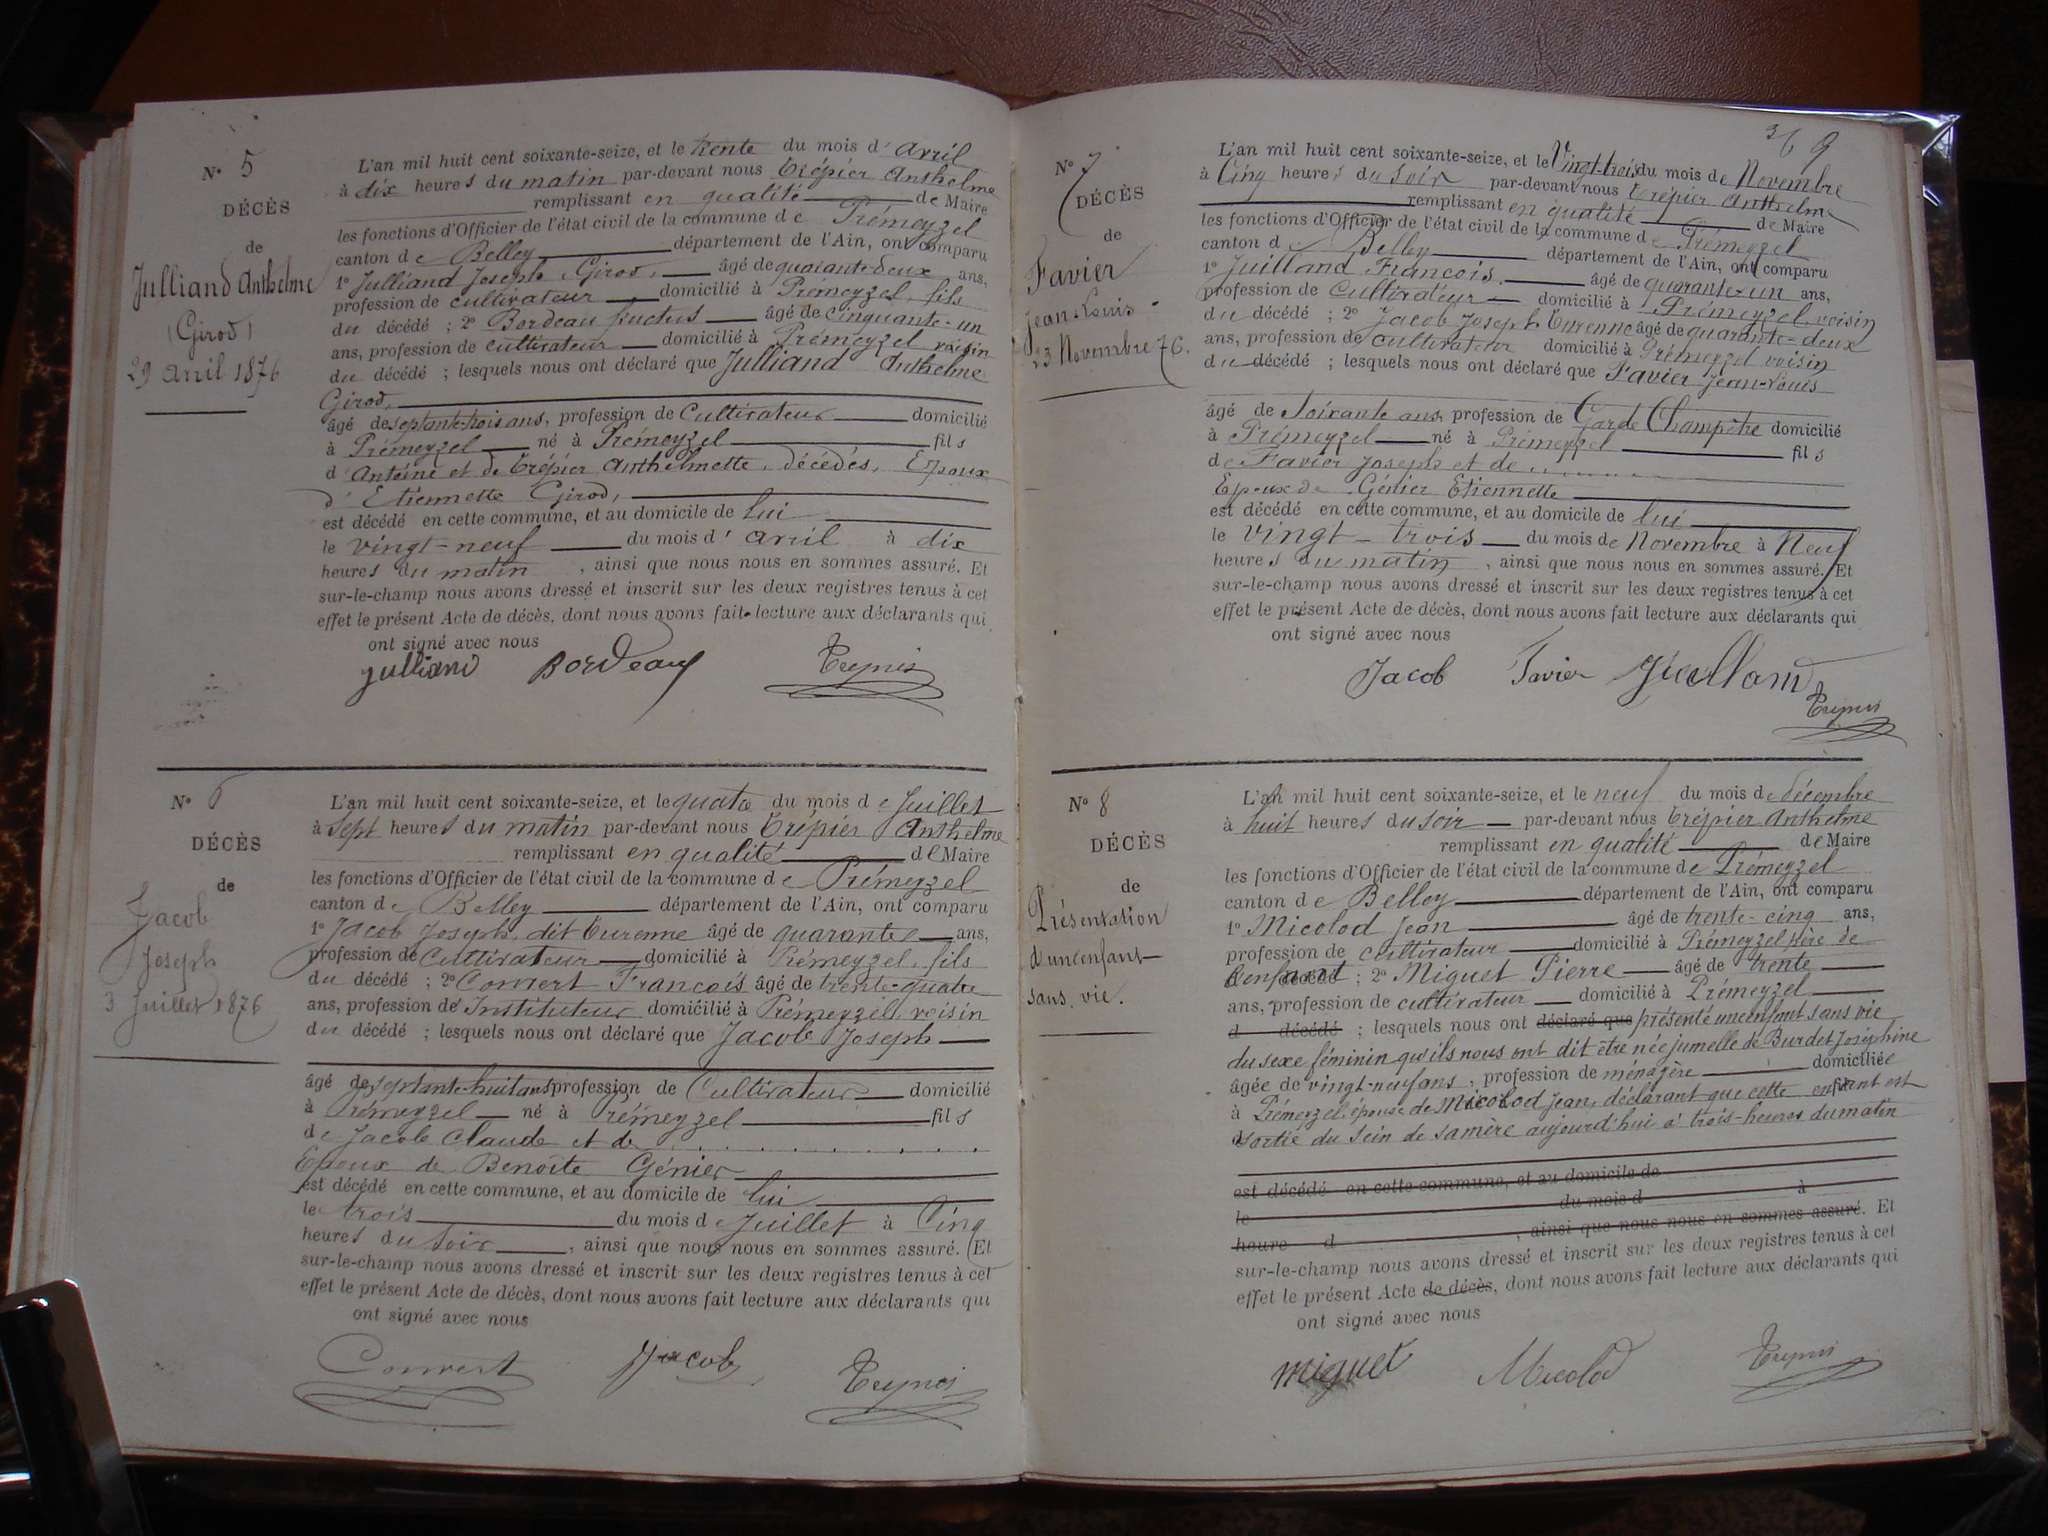 N° 5
DÉCÈS
de
Julliand Anthelme
(Girod)
29 avril 1876
L'an mil huit cent soixante-seize, et le trente du mois d'avril
à dix heures du matin par-devant nous Trépier Anthelme
remplissant en qualité de Maire
les fonctions d'Officier de l'état civil de la commune de Prémeyzel
canton de Belley département de l'Ain, ont comparu
1° Julliand Joseph Girod, âgé de quarante-deux ans,
profession de cultivateur domicilié à Prémeyzel, fils
du décédé ; 2° Bordeau âgé de cinquante-un
ans, profession de cultivateur domicilié à Prémeyzel voisin
du décédé ; lesquels nous ont déclaré que Julliand Anthelme
Girod,
âgé de septante-trois ans, profession de Cultivateur domicilié
à Prémeyzel né à Prémeyzel fils
d'Antoine et de Trépier Anthelmette, décédés, Epoux
d'Etiennette Girod,
est décédé en cette commune, et au domicile de lui
le vingt-neuf du mois d'avril à dix
heures du matin, ainsi que nous nous en sommes assuré. Et
sur-le-champ nous avons dressé et inscrit sur les deux registres tenus à cet
effet le présent Acte de décès, dont nous avons fait lecture aux déclarants qui
ont signé avec nous
Julliand Bordeau
N° 6
DÉCÈS
de
Jacob
Joseph
3 Juillet 1876
L'an mil huit cent soixante-seize, et le quatre du mois de Juillet
à Sept heures du matin par-devant nous Trépier Anthelme
remplissant en qualité de Maire
les fonctions d'Officier de l'état civil de la commune de Prémeyzel
canton de Belley département de l'Ain, ont comparu
1° Jacob Joseph dit Turenne âgé de quarante ans,
profession de Cultivateur domicilié à Prémeyzel, fils
du décédé ; 2° Convert François âgé de trente-quatre
ans, profession de Instituteur domicilié à Prémeyzel, voisin
du décédé ; lesquels nous ont déclaré que Jacob Joseph
âgé de septante-huit ans profession de Cultivateur domicilié
à Prémeyzel né à Prémeyzel fils
de Jacob Claude et de . . . . . . . . .
Epoux de Benoîte Génier
est décédé en cette commune, et au domicile de lui
le trois du mois de Juillet à Cinq
heures du soir, ainsi que nous nous en sommes assuré. Et
sur-le-champ nous avons dressé et inscrit sur les deux registres tenus à cet
effet le présent Acte de décès, dont nous avons fait lecture aux déclarants qui
ont signé avec nous
Convert Jacob
36 9
N° 7
DÉCÈS
de
Favier
Jean-Louis
23 Novembre 76.
L'an mil huit cent soixante-seize, et le Vingt-trois du mois de Novembre
à Cinq heures du soir par-devant nous Trépier Anthelme
remplissant en qualité de Maire
les fonctions d'Officier de l'état civil de la commune de Prémeyzel
canton de Belley département de l'Ain, ont comparu
1° Juilland François. âgé de quarante-un ans,
profession de Cultivateur domicilié à Prémeyzel voisin
du décédé ; 2° Jacob Joseph Turenne âgé de quarante-deux
ans, profession de cultivateur domicilié à Prémeyzel voisin
du décédé ; lesquels nous ont déclaré que Favier Jean-Louis
âgé de Soixante ans, profession de Garde Champêtre domicilié
à Prémeyzel né à Prémeyzel fils
de Favier Joseph et de . . . . . . . .
Epoux de Génier Etiennette
est décédé en cette commune, et au domicile de lui
le vingt-trois du mois de Novembre à Neuf
heures du matin, ainsi que nous nous en sommes assuré. Et
sur-le-champ nous avons dressé et inscrit sur les deux registres tenus à cet
effet le présent Acte de décès, dont nous avons fait lecture aux déclarants qui
ont signé avec nous
Jacob Favier Juilland
N° 8
DÉCÈS
de
Présentation
d'un enfant
sans vie.
L'an mil huit cent soixante-seize, et le neuf du mois de décembre
à huit heures du soir par-devant nous Trépier Anthelme
remplissant en qualité de Maire
les fonctions d'Officier de l'état civil de la commune de Prémeyzel
canton de Belley département de l'Ain, ont comparu
1° Micolod Jean âgé de trente-cinq ans,
profession de cultivateur domicilié à Prémeyzel père de
l'enfant ; 2° Miguet Pierre âgé de trente
ans, profession de cultivateur domicilié à Prémeyzel
d décédé ; lesquels nous ont déclaré que présenté un enfant sans vie
du sexe féminin qu'ils nous ont dit être née jumelle de Burdet Joséphine
âgée de vingt-neuf ans, profession de ménagère domiciliée
à Prémeyzel, épouse de Micolod Jean, déclarant que cette enfant est
sortie du sein de sa mère aujourd'hui à trois heures du matin
est décédé en cette commune, et au domicile de
le du mois d à
heure d , ainsi que nous nous en sommes assuré. Et
sur-le-champ nous avons dressé et inscrit sur les deux registres tenus à cet
effet le présent Acte de décès, dont nous avons fait lecture aux déclarants qui
ont signé avec nous
Miguet Micolod